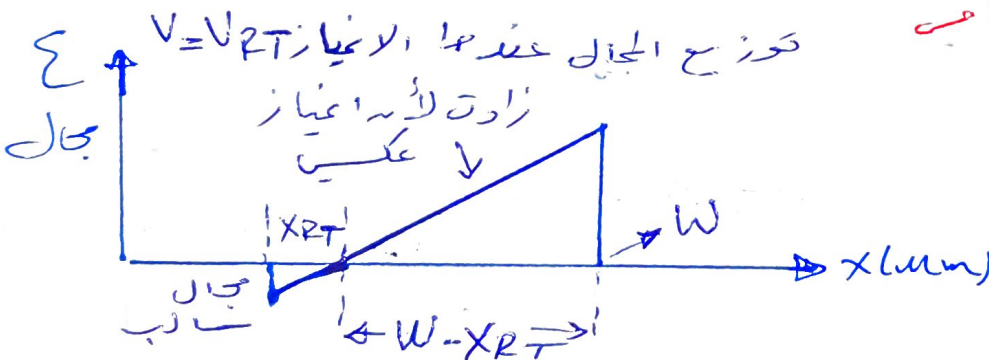 توزيع المجال عندما الانحياز V=VRT
زادت لأنه انحياز
عكسي
ξ
مجال
XRT
W
X(μm)
مجال
سالب
W-XRT